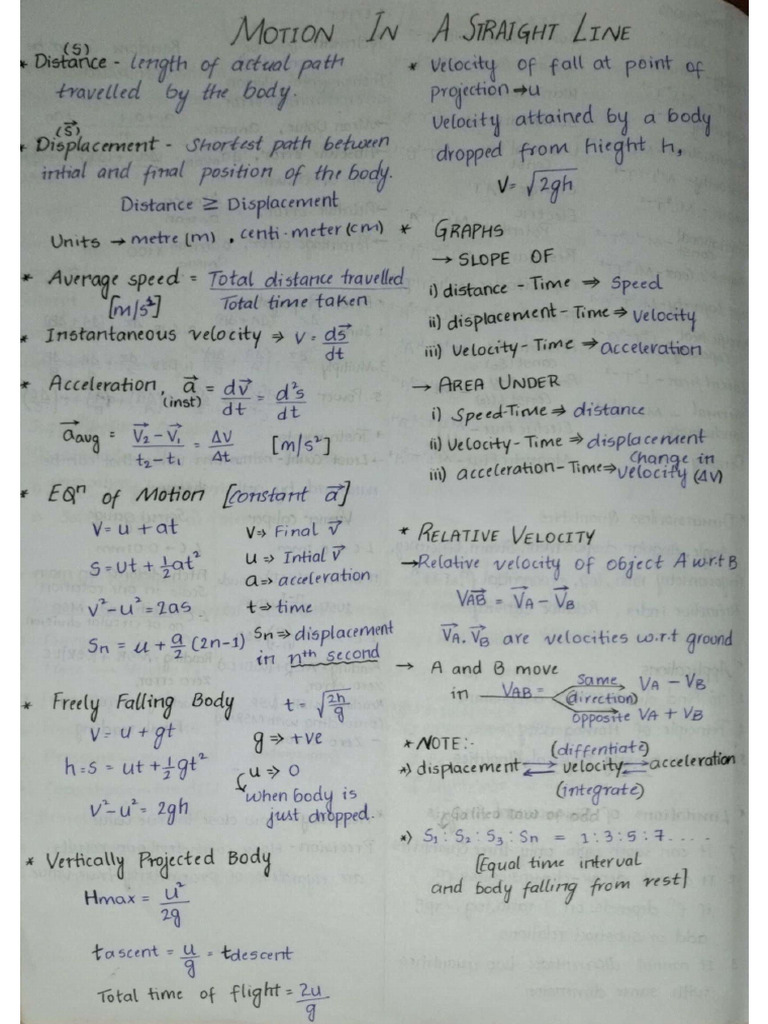 MOTION IN A STRAIGHT LINE
(S)
* Distance - length of actual path
travelled by the body.
(S⃗)
* Displacement - Shortest path between
intial and final position of the body.
Distance ≥ Displacement
Units → metre (m) , centi-meter (cm)
* Average speed = Total distance travelled / Total time taken
[m/s²]
* Instantaneous velocity ⇒ v = ds⃗/dt
* Acceleration, a⃗ = dv⃗/dt = d²s/dt
(inst)
a⃗avg = (V⃗₂ - V⃗₁)/(t₂ - t₁) = ΔV/Δt [m/s²]
* EQⁿ of Motion [constant a⃗]
V = u + at V ⇒ Final v⃗
S = ut + ½at² u ⇒ Intial v⃗
a ⇒ acceleration
v² - u² = 2as t ⇒ time
Sn = u + a/2 (2n-1) Sn ⇒ displacement
in nth second
* Freely Falling Body t = √(2h/g)
V = u + gt g ⇒ +ve
h = s = ut + ½gt² u ⇒ 0
when body is
v² - u² = 2gh just dropped.
* Vertically Projected Body
Hmax = u²/2g
tascent = u/g = tdescent
Total time of flight = 2u/g
* Velocity of fall at point of
projection → u
Velocity attained by a body
dropped from hieght h,
V = √2gh
* GRAPHS
→ SLOPE OF
i) distance - Time ⇒ Speed
ii) displacement - Time ⇒ velocity
iii) Velocity - Time ⇒ acceleration
→ AREA UNDER
i) Speed-Time ⇒ distance
ii) Velocity - Time ⇒ displacement
iii) acceleration - Time ⇒ Change in velocity (ΔV)
* RELATIVE VELOCITY
→ Relative velocity of object A w.r.t B
VAB⃗ = V⃗A - V⃗B
V⃗A. V⃗B are velocities w.r.t ground
→ A and B move
in VAB = same VA - VB
(direction)
opposite VA + VB
* NOTE:-
(diffentiate)
*) displacement ⇌ velocity ⇌ acceleration
(integrate)
*) S₁ : S₂ : S₃ : Sn = 1 : 3 : 5 : 7 . . . .
[Equal time interval
and body falling from rest]